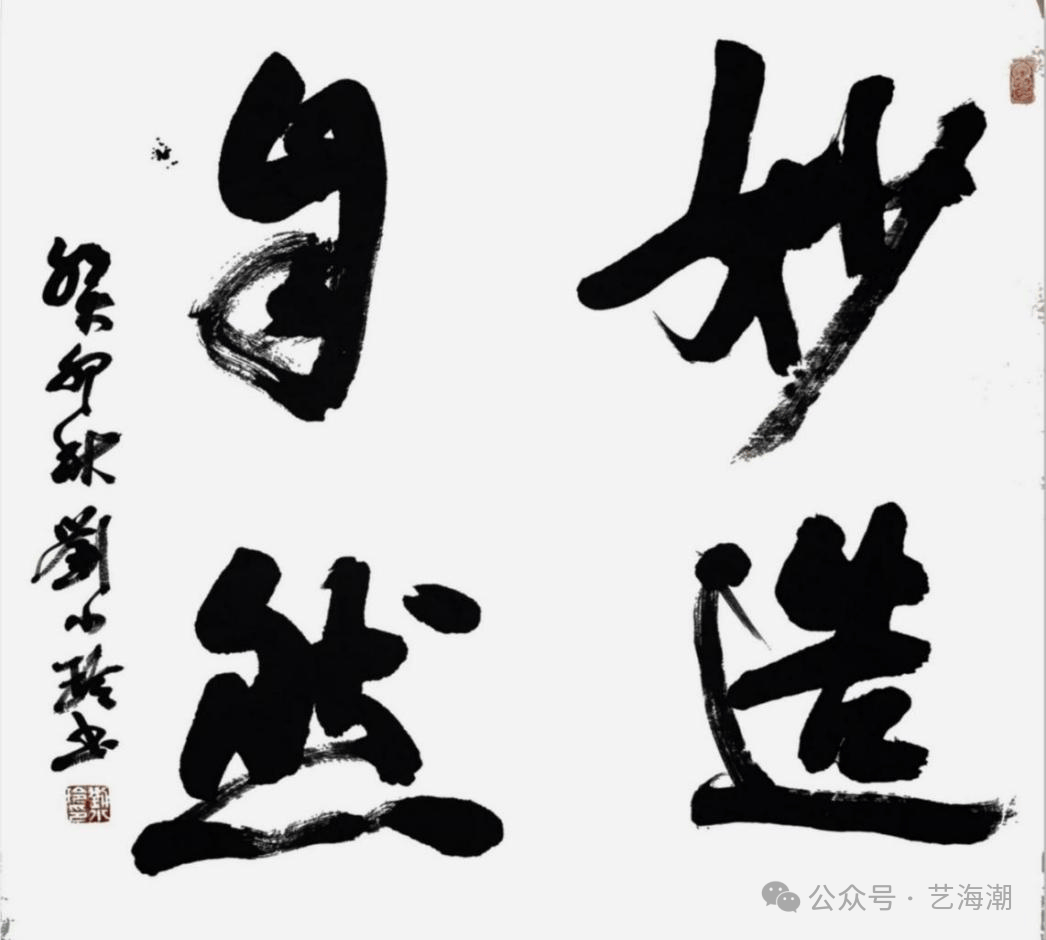 妙造
自然
癸卯秋劉小玲書
公众号·艺海潮